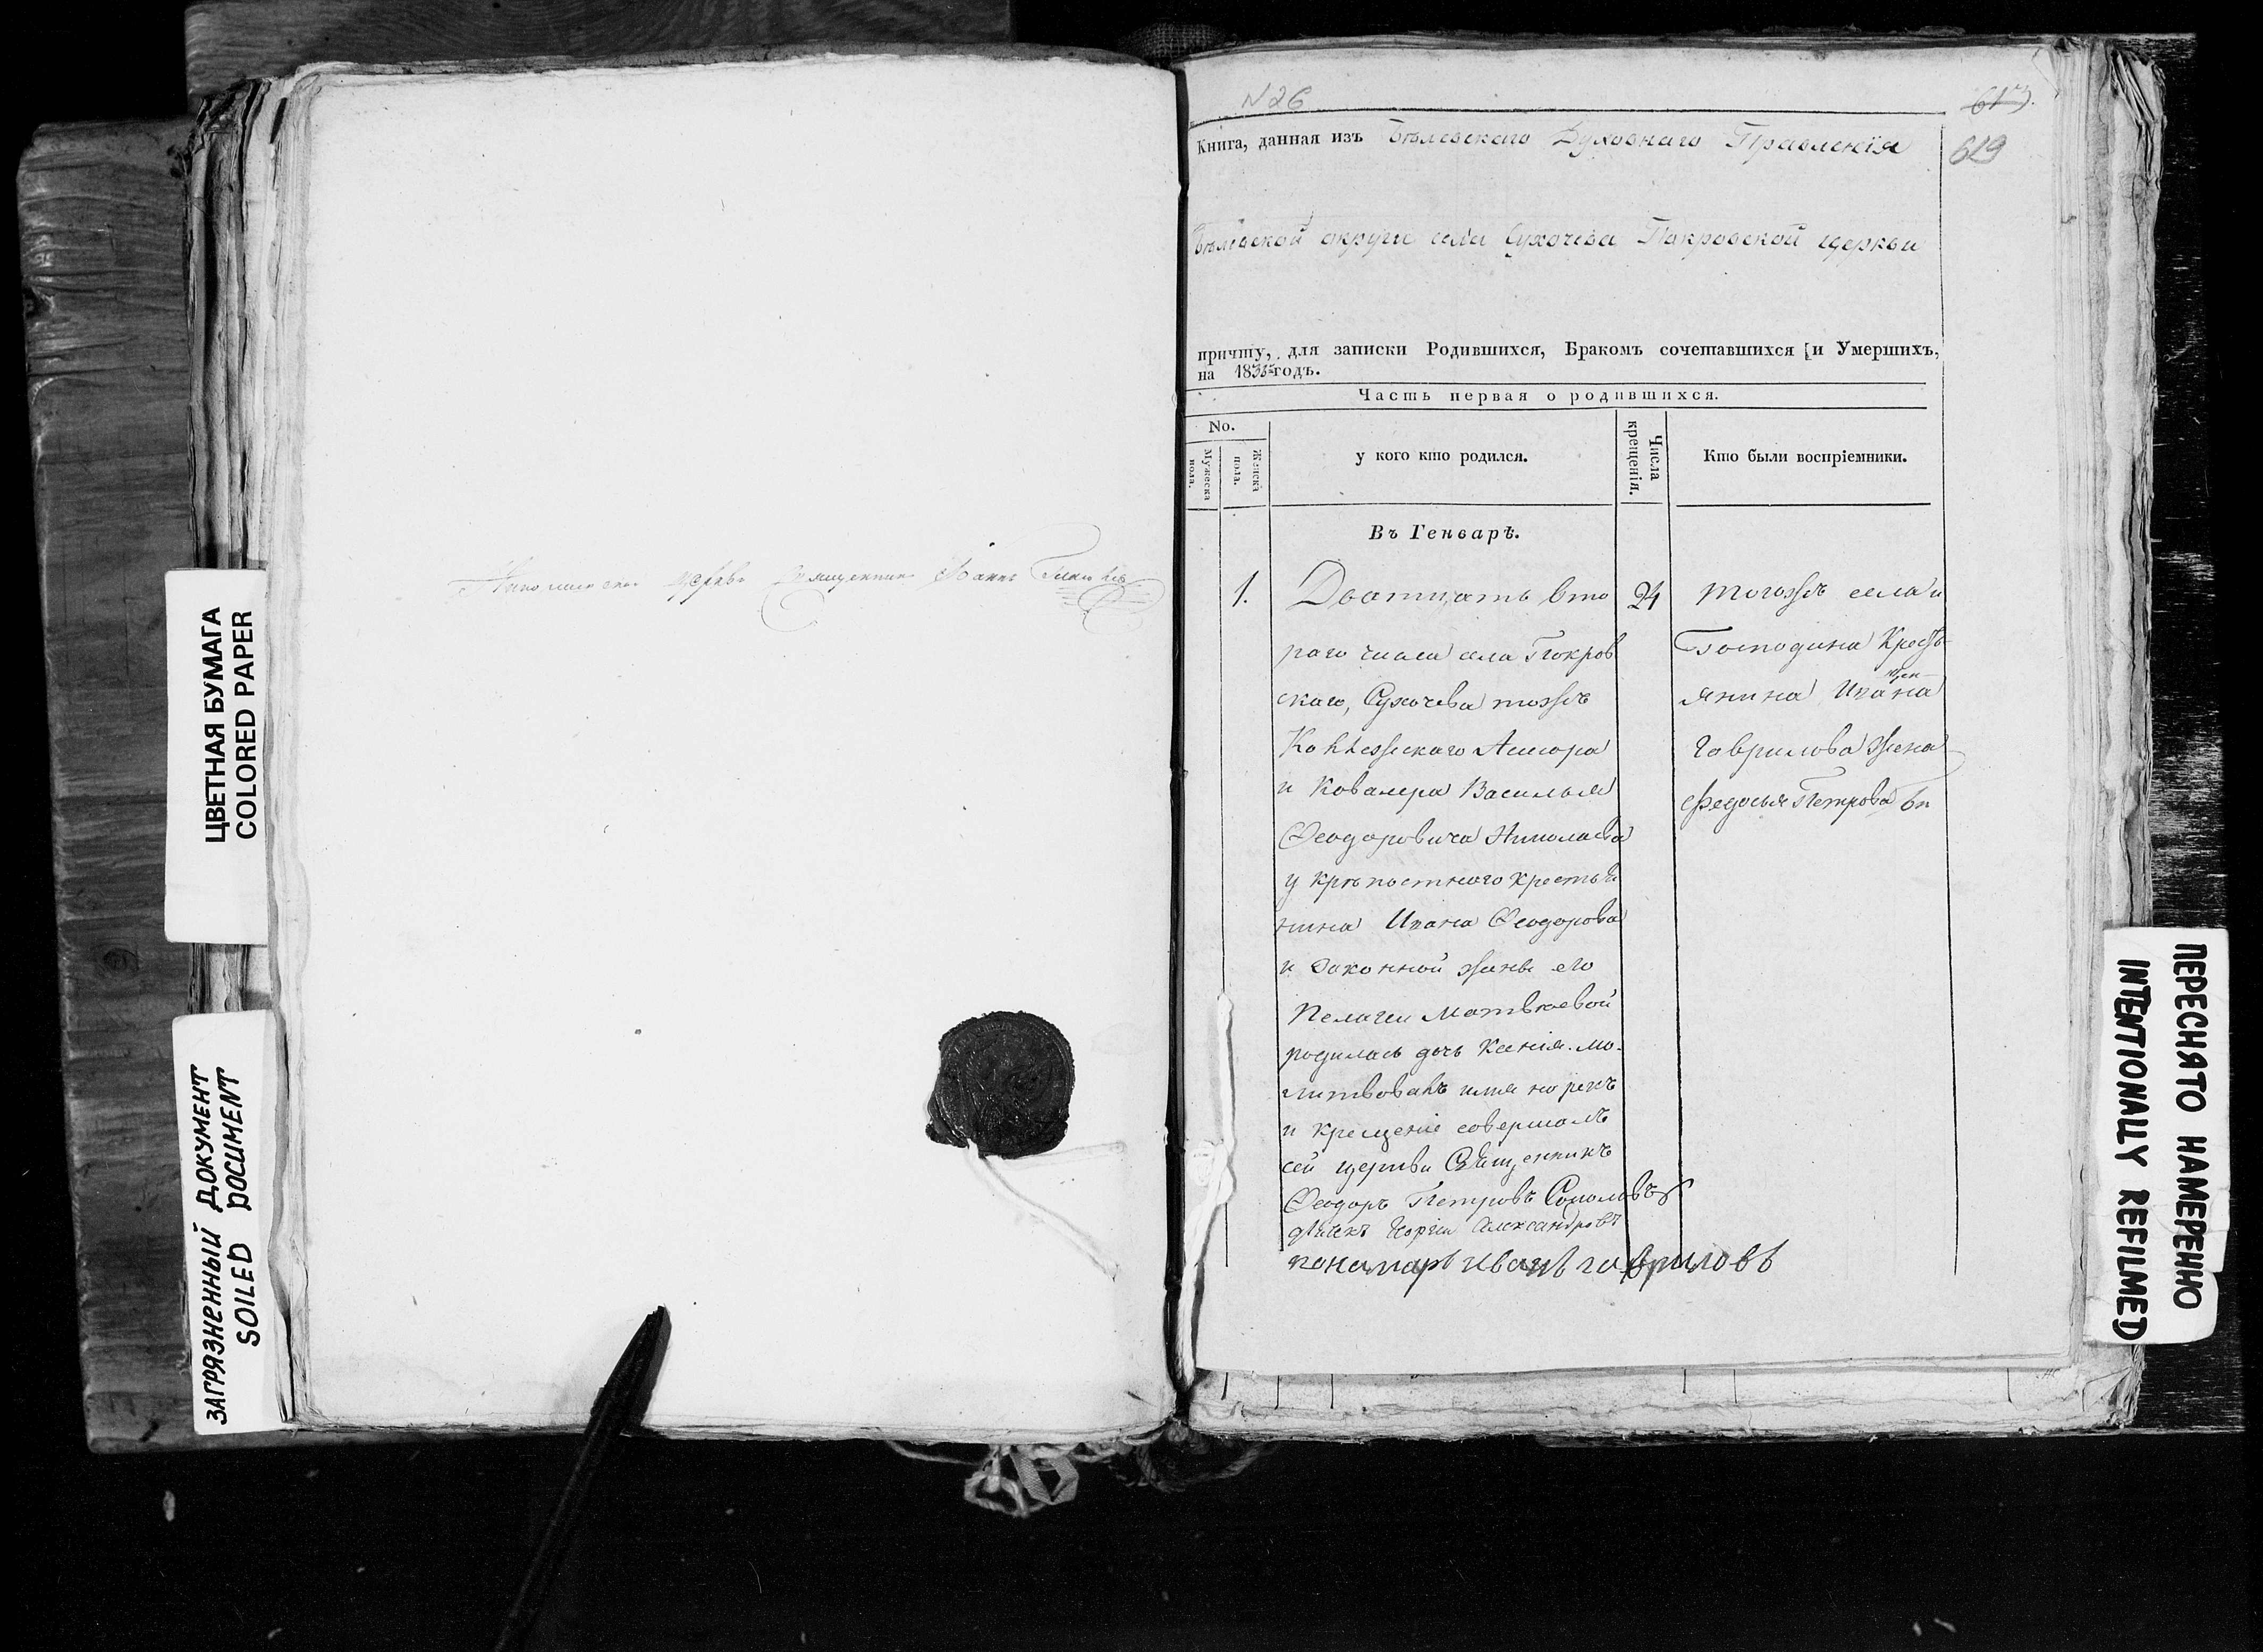 ЦВЕТНАЯ БУМАГА
COLORED PAPER
ЗАГРЯЗНЕННЫЙ ДОКУМЕНТ
SOILED DOCUMENT
церкви Священникъ Iоаннъ
N 26
619
Книга, данная изъ Бѣлевскаго Духовнаго Правленія
Бѣлевской округи села Сухочева Покровской церкви
причту, для записки Родившихся, Бракомъ сочетавшихся и Умершихъ,
на 1835 годъ.
Часть первая о родившихся.
No.
Мужеска пола.
Женска пола.
у кого кто родился.
Числа крещенія.
Кто были воспріемники.
Въ Генварѣ.
1.
Дватцать вто
раго числа села Покров
скаго, Сухочева тожъ
Коллежскаго Ассесора
и Ковалера Василья
Ѳеодоровича Николаева
у крѣпостного крестья
нина Ивана Ѳеодорова
и законной жены его
Пелагеи Матвѣевой
родилась дочь Ксенія. мо
литвовалъ имя нарекъ
и крещеніе совершалъ
сей церкви Священникъ
Ѳеодоръ Петровъ Соколовъ
дьячекъ Александровъ
понамарь иванъ гавриловъ
24
тогожъ села и
Господина Кресть
янина Ивана
Гаврилова жена
Федосья Петрова
ПЕРЕСНЯТО НАМЕРЕННО
INTENTIONALLY REFILMED